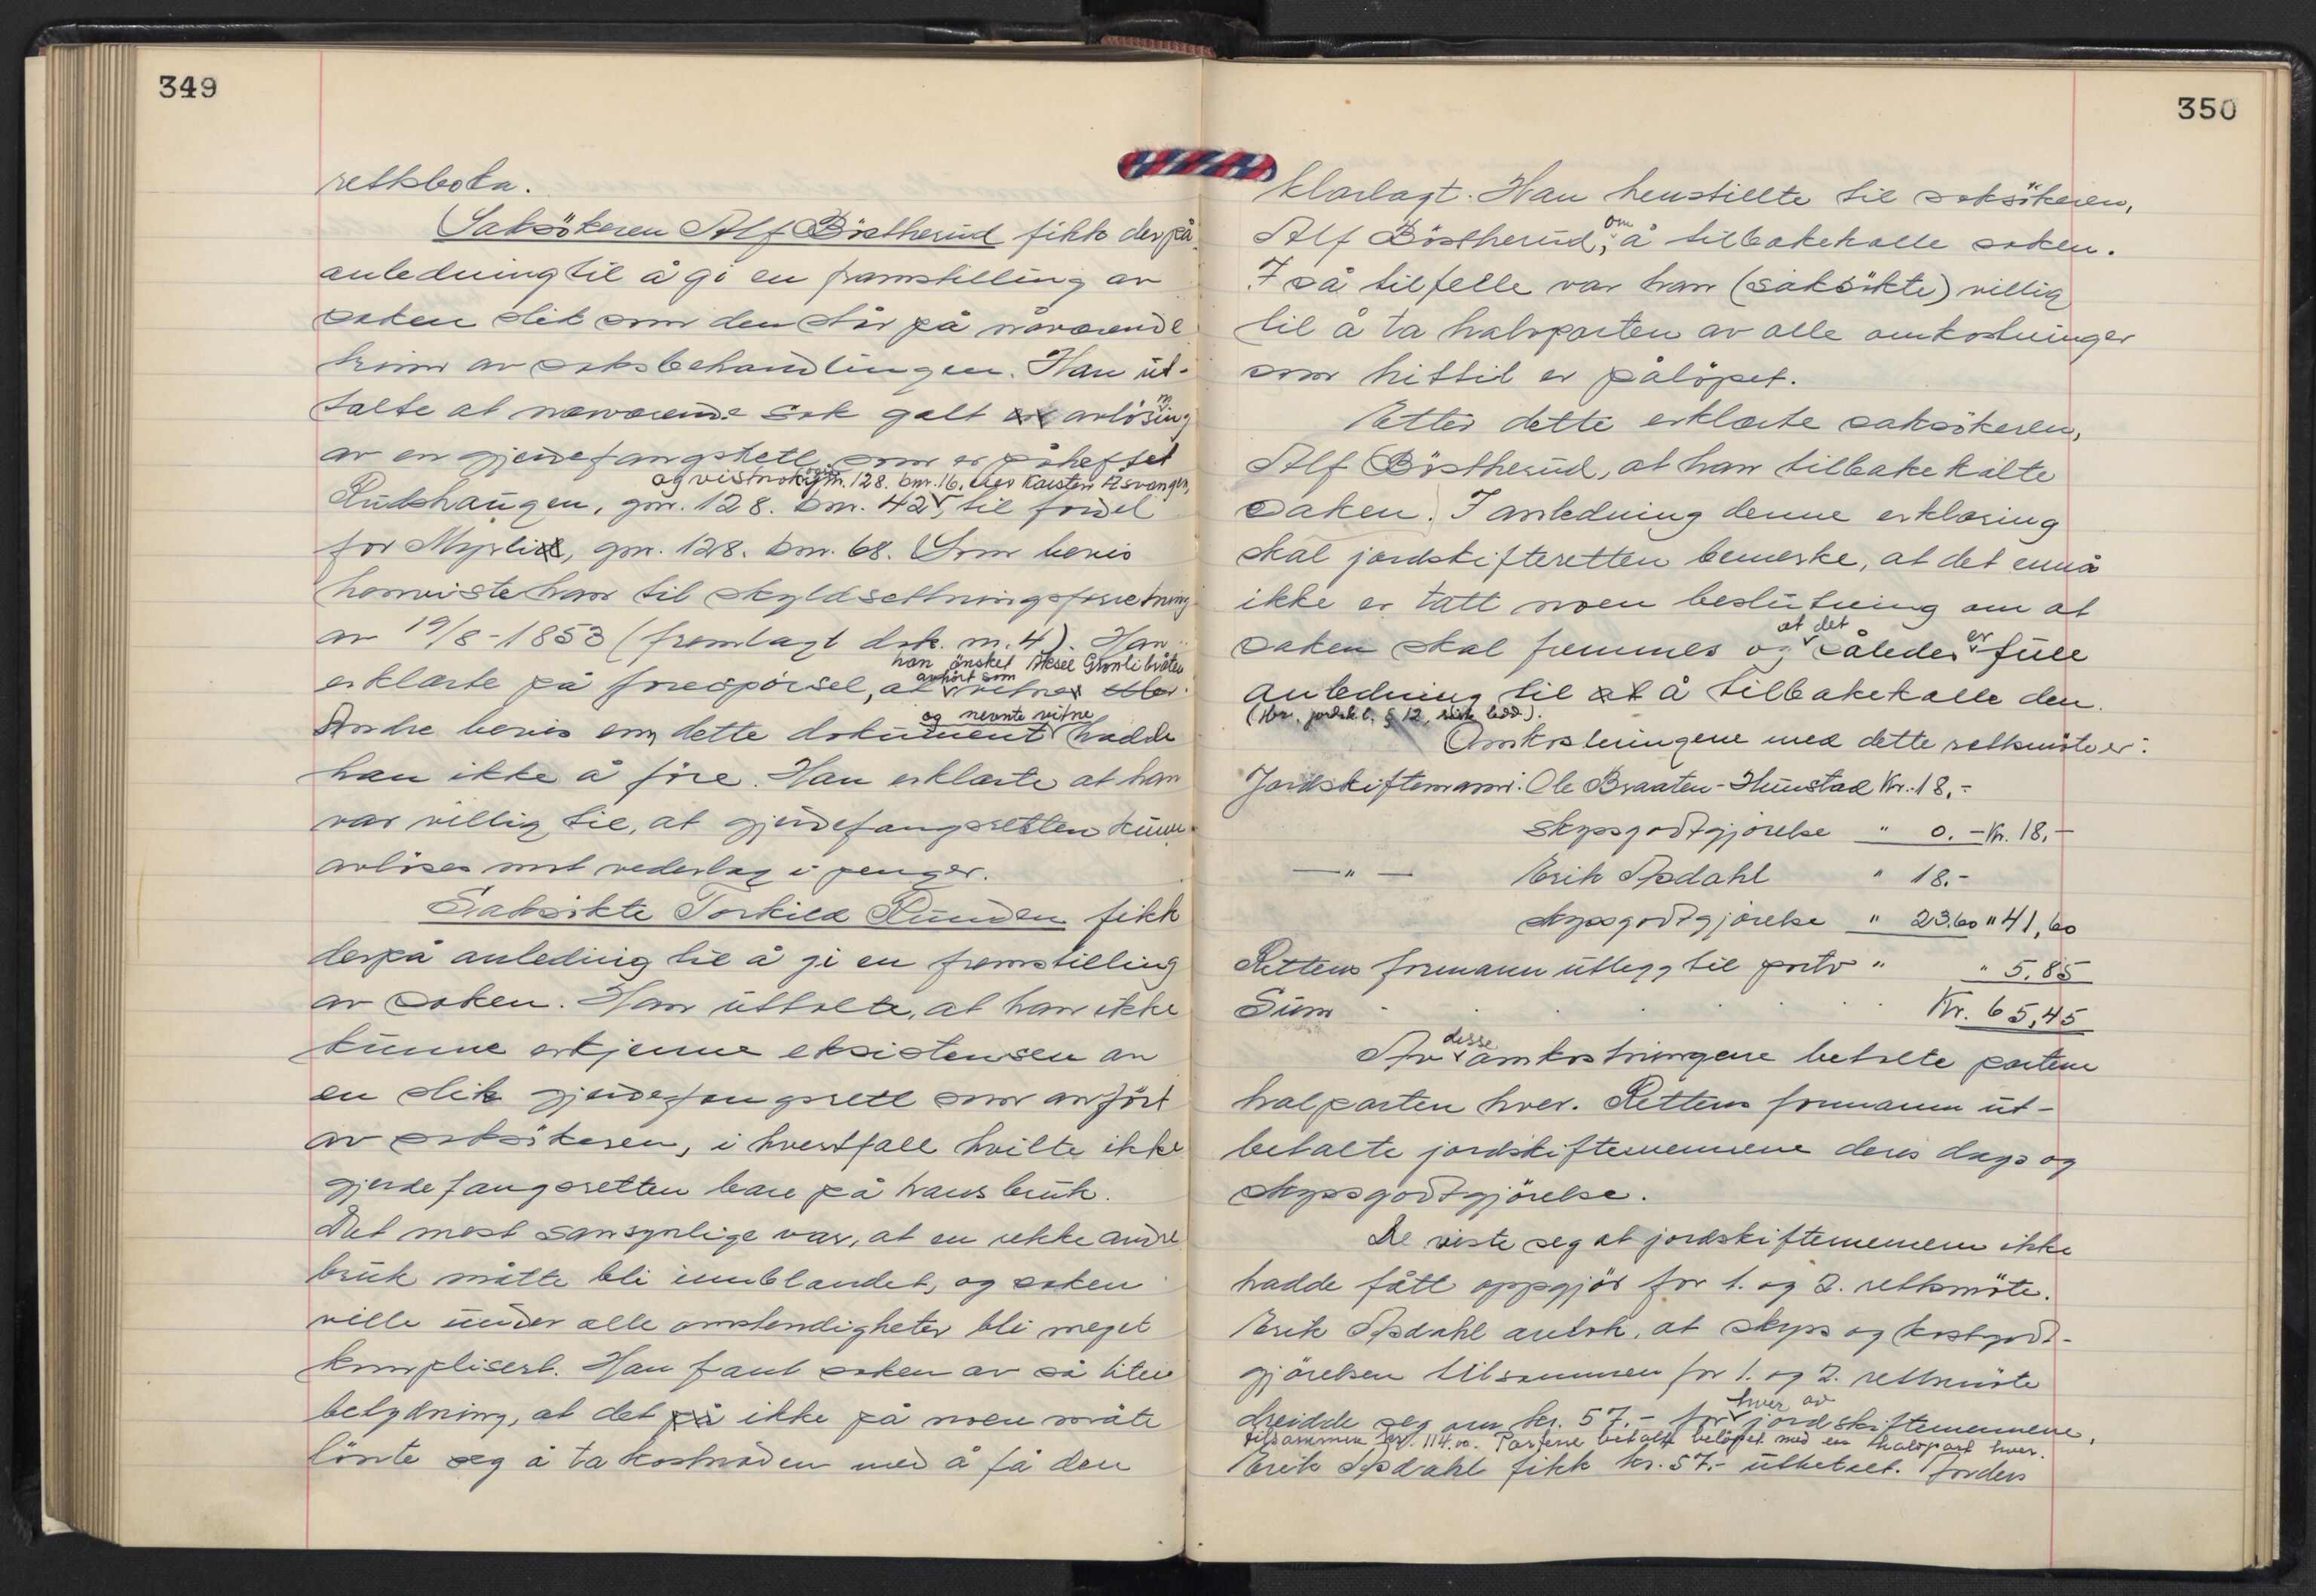 349
rettsboka.
Saksökeren Alf Böstherud fikk derpå
anledning til å gi en framstilling av
saken slik som den står på nåværende
trinn av saksbehandlingen. Han ut-
talte at nærværende sak galt avlösning
av en gjerdefangstrett, som er påheftet
og vistnok også gnr. 128. bnr. 16. eier Karsten Åsvangen,
Rudshaugen, gnr. 128. bnr. 42, til fordel
for Myrli, gnr. 128. bnr. 68. Som bevis
henviste han til skyldsettningsforretning
av 19/8-1853 (fremlagt dok. nr. 4). Han
han önsket Aksel Grønlibråten
anhört som
erklærte på forespörsel, at vitne
og nevnte vitne
Andre bevis enn dette dokument hadde
han ikke å före. Han erklærte at han
var villig til, at gjerdefangsretten kunne
avlöses mot vederlag i penger.
Saksökte Torkild Ruuden fikk
derpå anledning til å gi en fremstilling
av saken. Han uttalte, at han ikke
kunne erkjenne eksistensen av
en slik gjerdefangsrett som anfört
av saksökeren, i hvertfall hvilte ikke
gjerdefangsretten bare på hans bruk.
Det mest sansynlige var, at en rekke andre
bruk måtte bli innblandet, og saken
ville under alle omstendigheter bli meget
komplisert. Han fant saken av så liten
betydning, at det ikke på noen måte
lönte seg å ta kostnaden med å få den
350
klarlagt. Han henstillte til saksökeren,
Alf Böstherud, om å tilbakekalle saken.
I så tilfelle var han (saksökte) villig
til å ta halvparten av alle omkostninger
som hittil er pålöpet.
Etter dette erklærte saksökeren,
Alf Böstherud, at han tilbakekalte
saken. I anledning denne erklæring
skal jordskifteretten bemerke, at det ennå
ikke er tatt noen beslutning om at
saken skal fremmes og at det således er full
anledning til å tilbakekalle den.
(Jfr. jordsk.l. § 12, siste ledd).
Omkostningene med dette rettsmöte er:
Jordskiftemann: Ole Braaten-Hunstad Kr. 18,-
skyssgodtgjörelse " 0.- Kr. 18,-
— " — Erik Apdahl " 18.-
skyssgodtgjörelse " 23.60 " 41,60
Rettens formann utlegg til porto " " 5.85
Sum Kr. 65,45
Av disse omkostningene betalte partene
halparten hver. Rettens formann ut-
betalte jordskiftemennene deres dags og
skyssgodtgjörelse.
De viste seg at jordskiftemennene ikke
hadde fått oppgjör for 1. og 2. rettsmöte.
Erik Apdahl antok, at skyss og kostgodt-
gjörelsen tilsammen for 1. og 2. rettsmöte
dreidde seg om kr. 57.- for hver av jordskiftemennene,
tilsammen kr. 114.00. Partene betalte belöpet med en halvpart hver.
Erik Apdahl fikk kr. 57.- utbetalt.